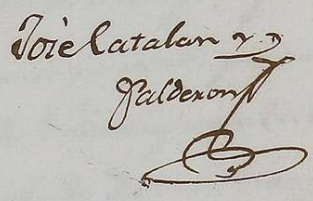 José Catalan y
Calderon